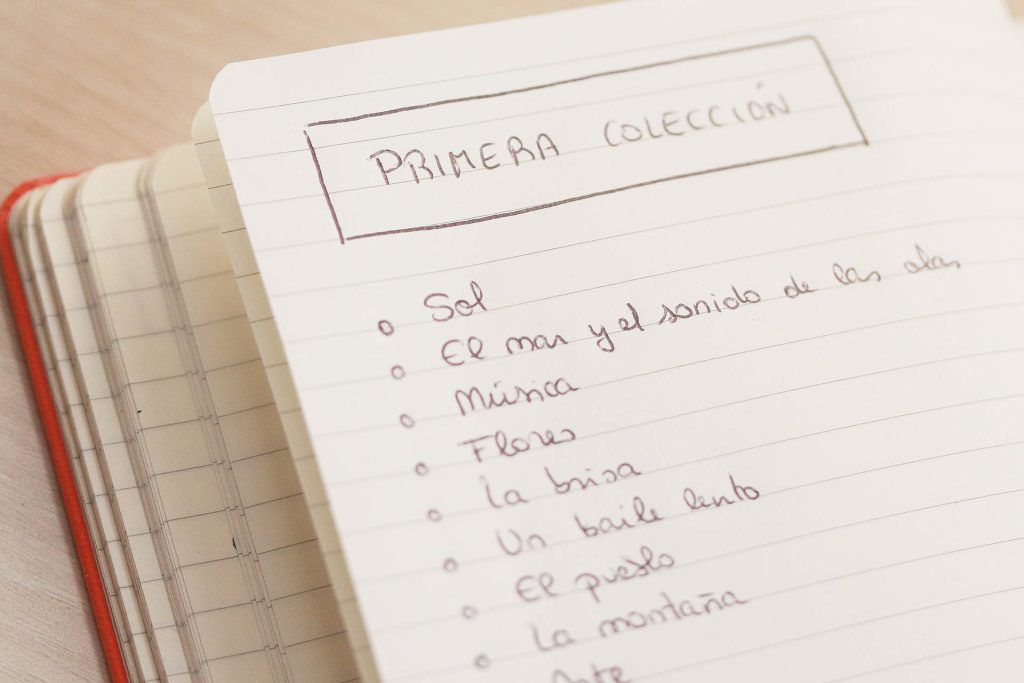 PRIMERA COLECCIÓN
Sol
El mar y el sonido de las olas
Música
Flores
La brisa
Un baile lento
El pueblo
La montaña
Arte